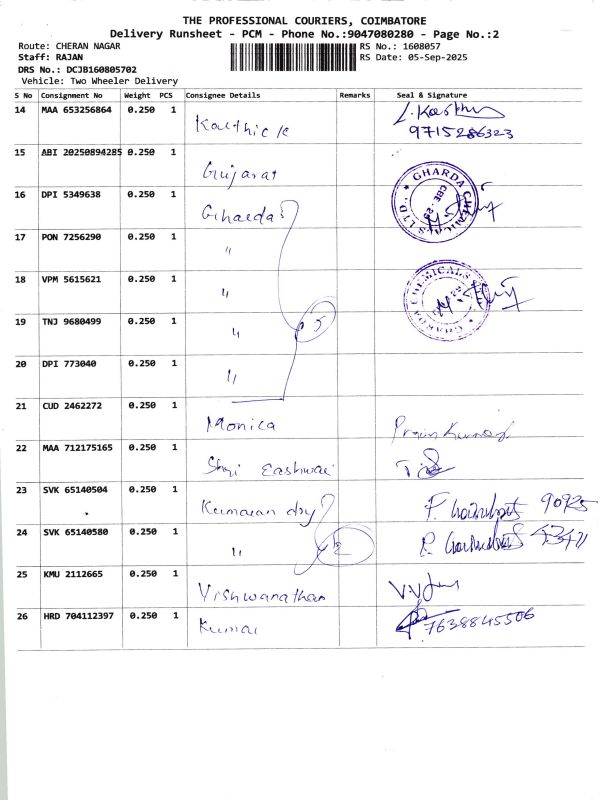 THE PROFESSIONAL COURIERS, COIMBATORE
Delivery Runsheet - PCM - Phone No.:9047080280 - Page No.:2
Route: CHERAN NAGAR RS No.: 1608057
Staff: RAJAN RS Date: 05-Sep-2025
DRS No.: DCJB160805702
Vehicle: Two Wheeler Delivery
S No Consignment No Weight PCS Consignee Details Remarks Seal & Signature
14 MAA 653256864 0.250 1 Karthick L. Karthi
9715286323
15 ABI 20250894285 0.250 1 Gujarat
16 DPI 5349638 0.250 1 Gharda GHARDA CHEMICALS LTD. CBE
17 PON 7256290 0.250 1 "
18 VPM 5615621 0.250 1 " GHARDA CHEMICALS
19 TNJ 9680499 0.250 1 " 5
20 DPI 773040 0.250 1 "
21 CUD 2462272 0.250 1 Monica
22 MAA 712175165 0.250 1 Shri Eashwar
23 SVK 65140504 0.250 1 Kumaran
24 SVK 65140580 0.250 1 " 2
25 KMU 2112665 0.250 1 Vishwanathan
26 HRD 704112397 0.250 1 Kumar 7638845506